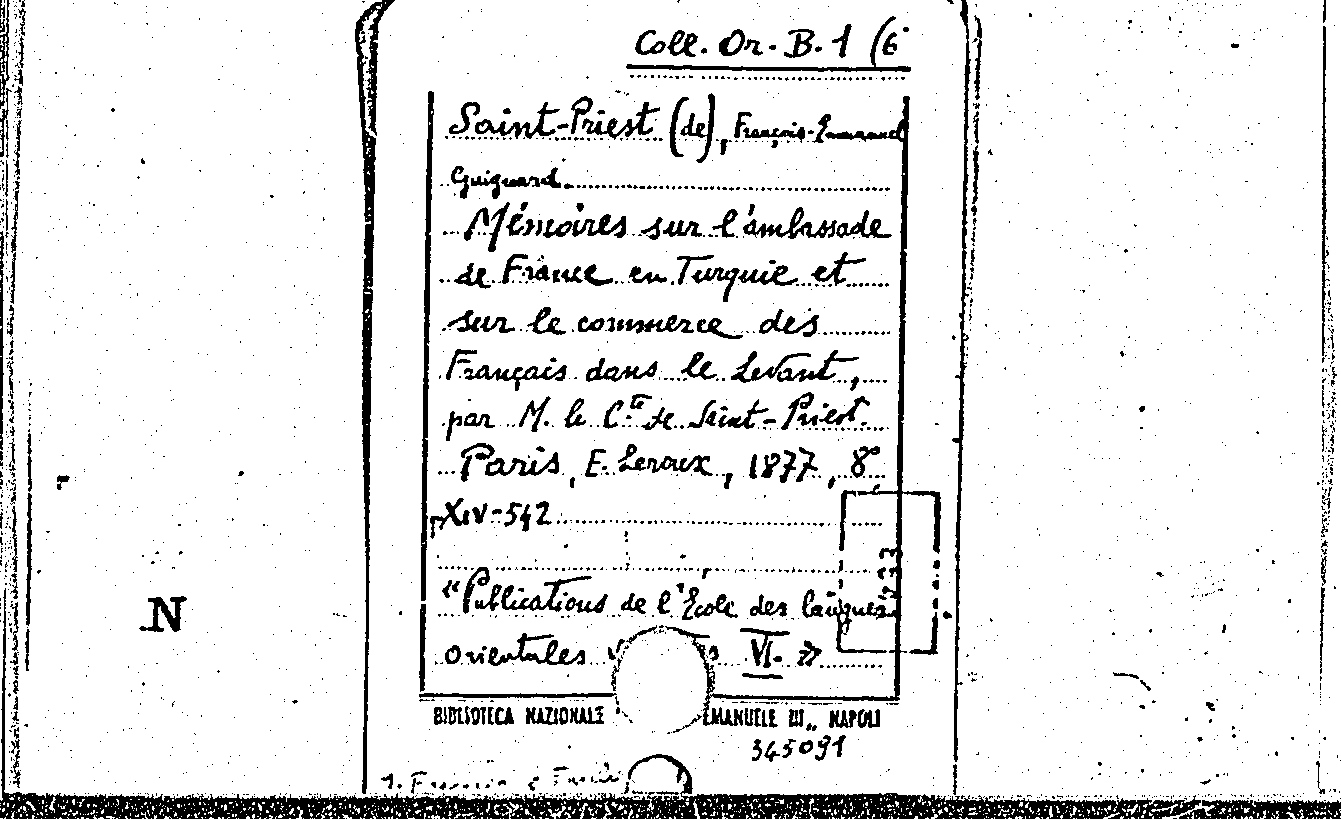 Coll. Or. B. 1 (6
Saint-Priest (de), François-Emmanuel
Guignard.
Mémoires sur l'ambassade
de France en Turquie et
sur le commerce des
Français dans le Levant,
par M. le C.te de Saint-Priest.
Paris, E. Leroux, 1877, 8°,
XIV-542
"Publications de l'École des langues
orientales VI. »
BIBLIOTECA NAZIONALE EMANUELE III,, NAPOLI
345091
1. Francia e
N